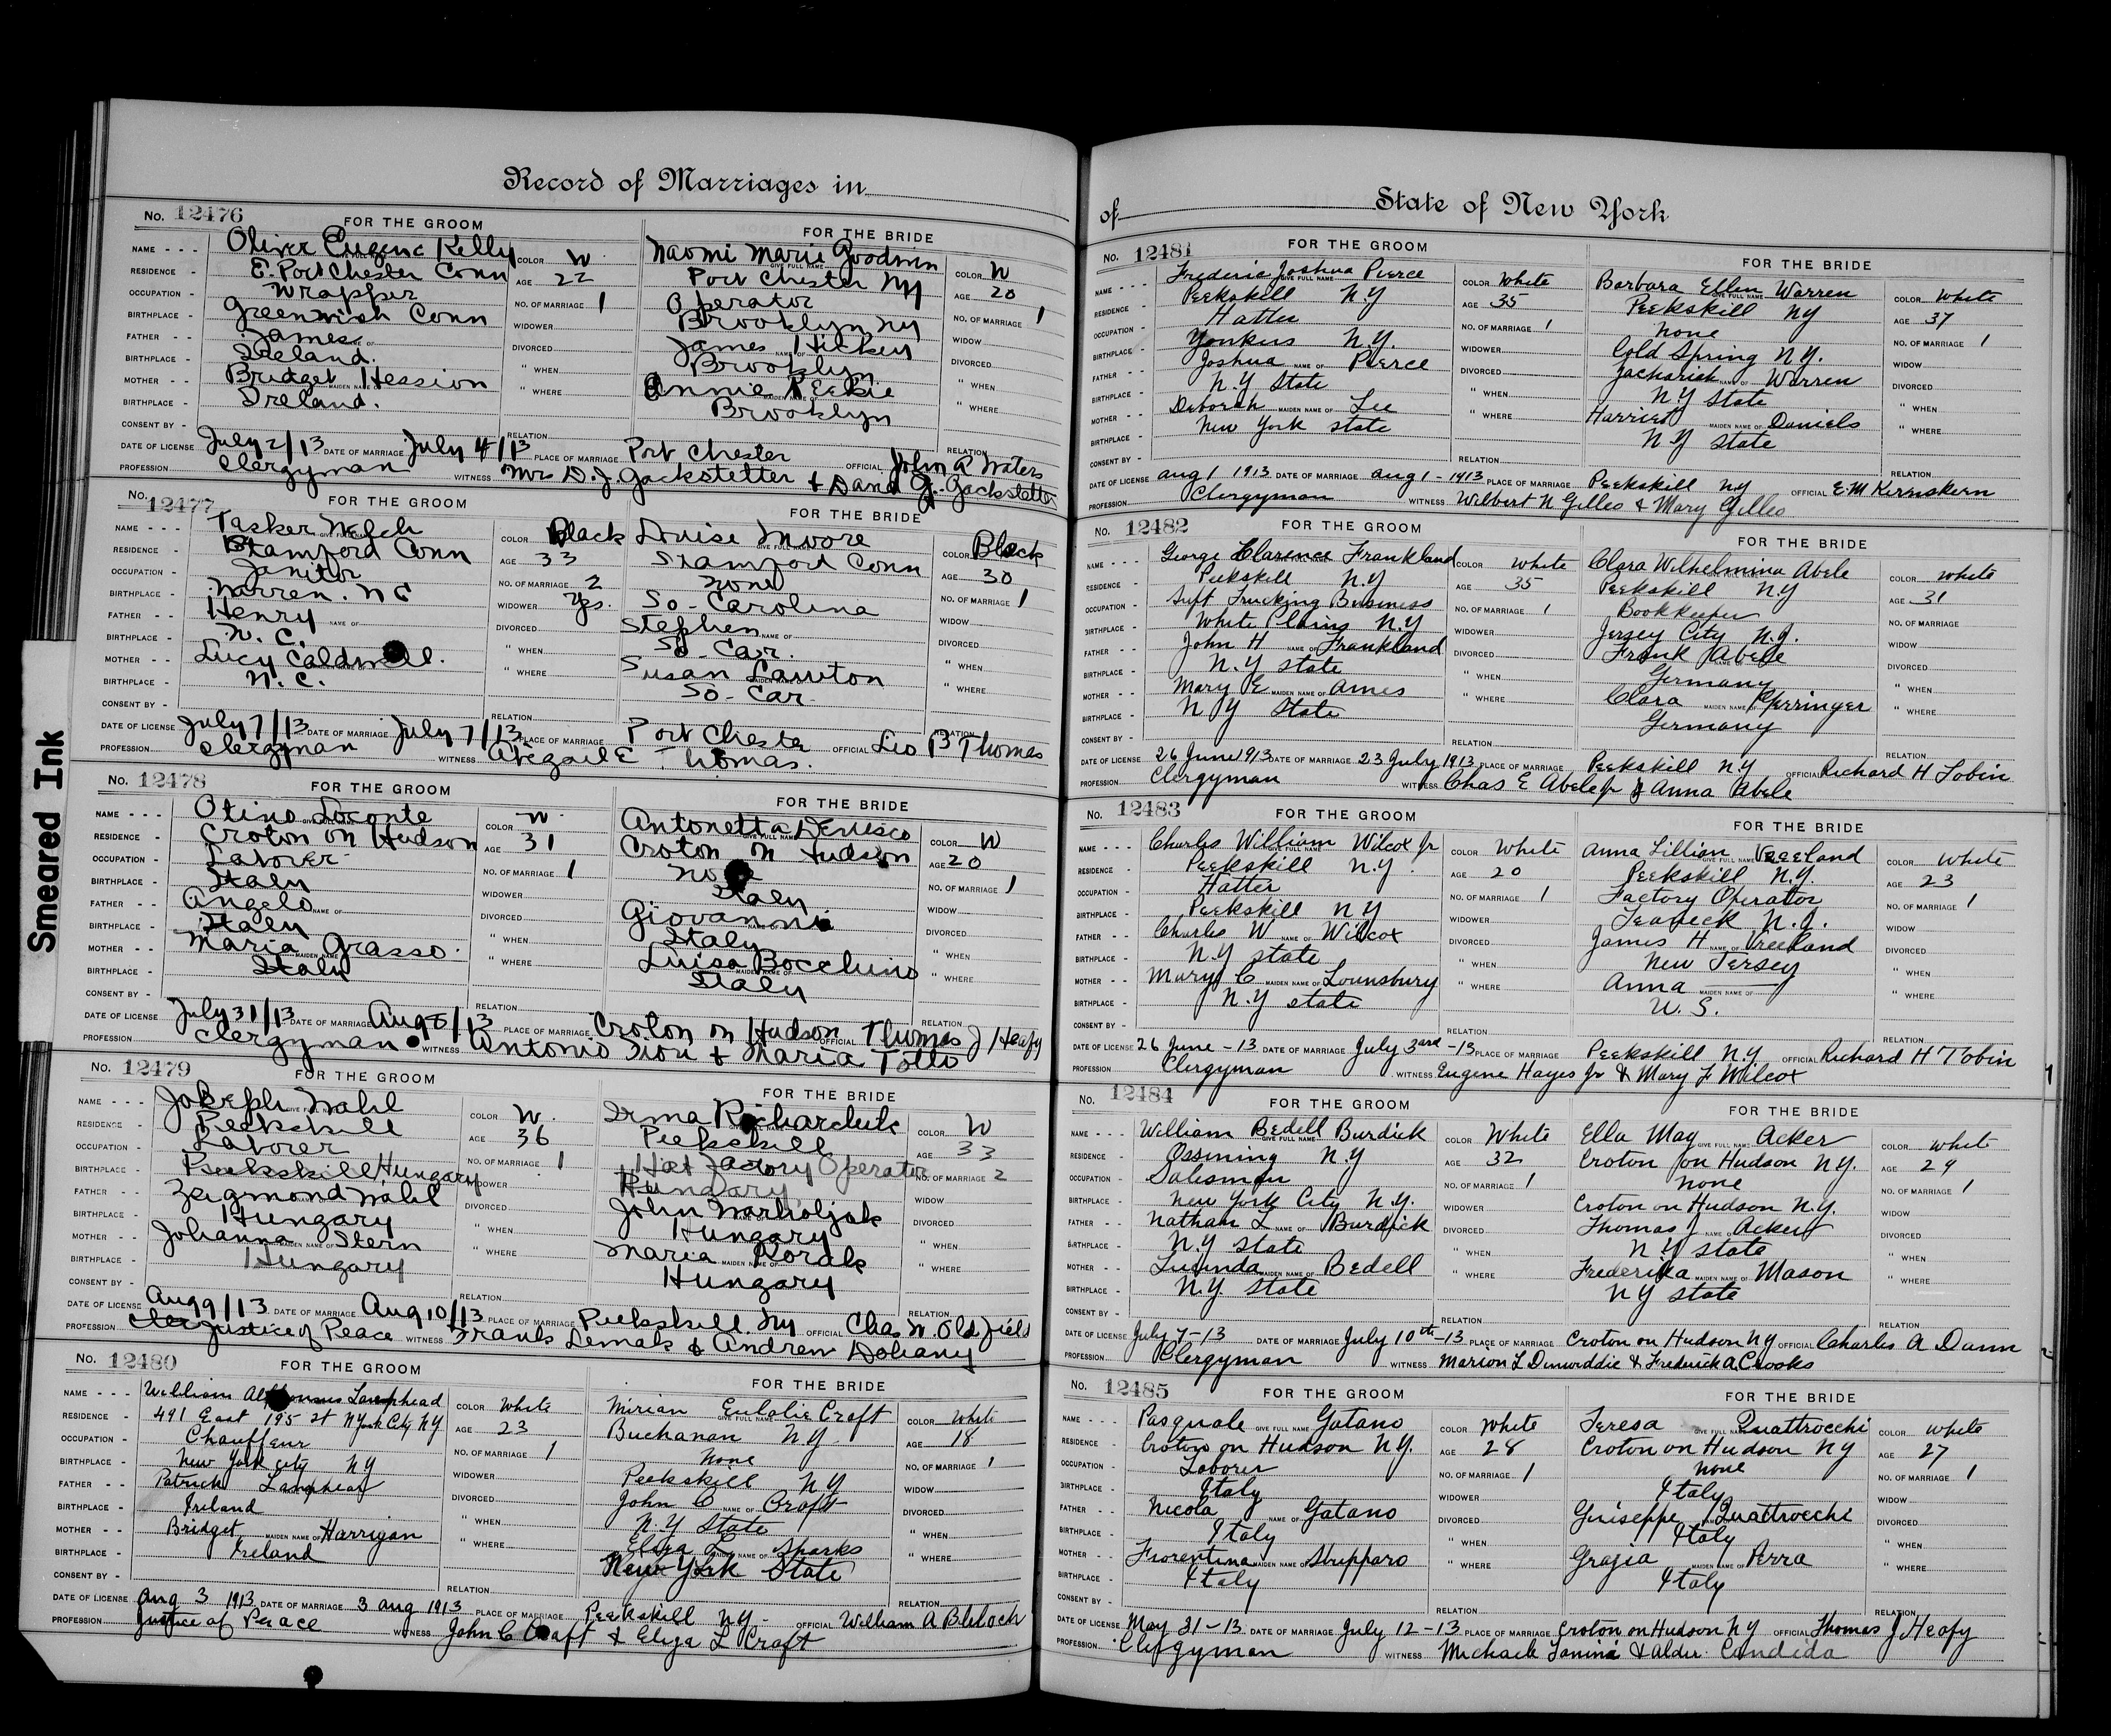 Smeared Ink
Record of Marriages in
No. 12476 FOR THE GROOM FOR THE BRIDE
NAME - - - Oliver Eugene Kelly COLOR W Naomi Marie Goodwin COLOR W
RESIDENCE - E. Port Chester Conn AGE 22 Port Chester NY AGE 20
OCCUPATION - Wrapper NO. OF MARRIAGE 1 Operator NO. OF MARRIAGE 1
BIRTHPLACE - Greenwich Conn WIDOWER Brooklyn NY WIDOW
FATHER - - James NAME OF DIVORCED James Hickey NAME OF DIVORCED
BIRTHPLACE - Ireland. " WHEN Brooklyn " WHEN
MOTHER - - Bridget Hession MAIDEN NAME OF " WHERE Annie MAIDEN NAME OF " WHERE
BIRTHPLACE - Ireland. Brooklyn
CONSENT BY - RELATION RELATION
DATE OF LICENSE July 2/13 DATE OF MARRIAGE July 4/13 PLACE OF MARRIAGE Port Chester OFFICIAL John A Waters
PROFESSION Clergyman WITNESS Mrs D. J. Gackstetter + David J. Gackstetter
No. 12477 FOR THE GROOM FOR THE BRIDE
NAME - - - Tasker Welch COLOR Black Louise Moore COLOR Black
RESIDENCE - Stamford Conn AGE 33 Stamford Conn AGE 30
OCCUPATION - Janitor NO. OF MARRIAGE 2 None NO. OF MARRIAGE 1
BIRTHPLACE - Warren. N C WIDOWER Yes. So-Carolina WIDOW
FATHER - - Henry NAME OF DIVORCED Stephen NAME OF DIVORCED
BIRTHPLACE - N. C. " WHEN So-Car. " WHEN
MOTHER - - Lucy Caldwell. " WHERE Susan Lawton " WHERE
BIRTHPLACE - N. C. So-Car
CONSENT BY - RELATION RELATION
DATE OF LICENSE July 7/13 DATE OF MARRIAGE July 7/13 PLACE OF MARRIAGE Port Chester OFFICIAL Leo B Thomas
PROFESSION Clergyman WITNESS Abegail E Thomas.
No. 12478 FOR THE GROOM FOR THE BRIDE
NAME - - - Otino Loconte COLOR W Antonetta COLOR W
RESIDENCE - Croton on Hudson AGE 31 Croton on Hudson AGE 20
OCCUPATION - Laborer NO. OF MARRIAGE 1 None NO. OF MARRIAGE 1
BIRTHPLACE - Italy WIDOWER Italy WIDOW
FATHER - - Angelo NAME OF DIVORCED Giovanni NAME OF DIVORCED
BIRTHPLACE - Italy " WHEN Italy " WHEN
MOTHER - - Maria Grasso MAIDEN NAME OF " WHERE Luisa Bocchino MAIDEN NAME OF " WHERE
BIRTHPLACE - Italy Italy
CONSENT BY - RELATION RELATION
DATE OF LICENSE July 31/13 DATE OF MARRIAGE Aug 8/13 PLACE OF MARRIAGE Croton on Hudson OFFICIAL Thomas J Heafy
PROFESSION Clergyman WITNESS Antonio + Maria Tollo
No. 12479 FOR THE GROOM FOR THE BRIDE
NAME - - - Joseph Wahl COLOR W. Irma COLOR W
RESIDENCE - Peekskill AGE 36 Peekskill AGE 33
OCCUPATION - Laborer NO. OF MARRIAGE 1 Hat Factory Operator NO. OF MARRIAGE 2
BIRTHPLACE - Peekskill Hungary WIDOWER Hungary WIDOW
FATHER - - Zeigmond Wahl DIVORCED John Warholjak DIVORCED
BIRTHPLACE - Hungary " WHEN Hungary " WHEN
MOTHER - - Johanna MAIDEN NAME OF Stern " WHERE Maria MAIDEN NAME OF Korak " WHERE
BIRTHPLACE - Hungary Hungary
CONSENT BY - RELATION RELATION
DATE OF LICENSE Aug 9/13 DATE OF MARRIAGE Aug 10/13 PLACE OF MARRIAGE Peekskill NY OFFICIAL Chas W. Oldfield
PROFESSION Justice of Peace WITNESS Frank Lemak & Andrew Dohany
No. 12480 FOR THE GROOM FOR THE BRIDE
NAME - - - William Alphonsus Lamphead COLOR White Mirian Eulalie Craft COLOR White
RESIDENCE - 491 East 195 St N York City NY AGE 23 Buchanan NY AGE 18
OCCUPATION - Chauffeur NO. OF MARRIAGE 1 None NO. OF MARRIAGE 1
BIRTHPLACE - New York City NY WIDOWER Peekskill NY WIDOW
FATHER - - Patrick Lamphead DIVORCED John C NAME OF Craft DIVORCED
BIRTHPLACE - Ireland " WHEN N.Y State " WHEN
MOTHER - - Bridget MAIDEN NAME OF Harrigan " WHERE Eliza L MAIDEN NAME OF Sparks " WHERE
BIRTHPLACE - Ireland New York State
CONSENT BY - RELATION RELATION
DATE OF LICENSE Aug 3 1913 DATE OF MARRIAGE 3 Aug 1913 PLACE OF MARRIAGE Peekskill NY OFFICIAL William A
PROFESSION Justice of Peace WITNESS John C Craft & Eliza L Craft
of State of New York
No. 12481 FOR THE GROOM FOR THE BRIDE
NAME - - - Frederic Joshua Pierce COLOR White Barbara Ellen Warren COLOR White
RESIDENCE Peekskill NY AGE 35 Peekskill NY AGE 37
OCCUPATION - Hatter NO. OF MARRIAGE 1 None NO. OF MARRIAGE 1
BIRTHPLACE - Yonkers N.Y. WIDOWER Cold Spring N.Y. WIDOW
FATHER - - Joshua NAME OF Pierce DIVORCED Zachariah NAME OF Warren DIVORCED
BIRTHPLACE - N.Y State " WHEN N.Y State " WHEN
MOTHER - - Deborah MAIDEN NAME OF Lee " WHERE Harriet MAIDEN NAME OF Daniels " WHERE
BIRTHPLACE - New York State N.Y State
CONSENT BY - RELATION RELATION
DATE OF LICENSE Aug 1 1913 DATE OF MARRIAGE Aug 1-1913 PLACE OF MARRIAGE Peekskill NY OFFICIAL E M Kerniskern
PROFESSION Clergyman WITNESS Wilbert N Gilles & Mary Gilles
No. 12482 FOR THE GROOM FOR THE BRIDE
NAME - - - George Clarence Frankland COLOR White Clara Wilhelmina Abele COLOR White
RESIDENCE - Peekskill NY AGE 35 Peekskill NY AGE 31
OCCUPATION - Supt Trucking Business NO. OF MARRIAGE 1 Bookkeeper NO. OF MARRIAGE
BIRTHPLACE - White Plains N.Y WIDOWER Jersey City N.J. WIDOW
FATHER - - John H NAME OF Frankland DIVORCED Frank Abele DIVORCED
BIRTHPLACE - N.Y State " WHEN Germany " WHEN
MOTHER - - Mary E MAIDEN NAME OF Ames " WHERE Clara MAIDEN NAME OF " WHERE
BIRTHPLACE - N Y State Germany
CONSENT BY - RELATION RELATION
DATE OF LICENSE 26 June 1913 DATE OF MARRIAGE 23 July 1913 PLACE OF MARRIAGE Peekskill NY OFFICIAL Richard H Tobin
PROFESSION Clergyman WITNESS Chas E Abele Jr & Anna Abele
No. 12483 FOR THE GROOM FOR THE BRIDE
NAME - - - Charles William Wilcox Jr COLOR White Anna Lillian Vreeland COLOR White
RESIDENCE - Peekskill N.Y. AGE 20 Peekskill N.Y. AGE 23
OCCUPATION - Hatter NO. OF MARRIAGE 1 Factory Operator NO. OF MARRIAGE 1
BIRTHPLACE - Peekskill NY WIDOWER Teaneck N.J. WIDOW
FATHER - - Charles W NAME OF Wilcox DIVORCED James H NAME OF Vreeland DIVORCED
BIRTHPLACE - N.Y State " WHEN New Jersey " WHEN
MOTHER - - Mary C MAIDEN NAME OF Lounsbury " WHERE Anna MAIDEN NAME OF " WHERE
BIRTHPLACE - N.Y State U.S.
CONSENT BY - RELATION RELATION
DATE OF LICENSE 26 June -13 DATE OF MARRIAGE July 3rd -13 PLACE OF MARRIAGE Peekskill NY OFFICIAL Richard H Tobin
PROFESSION Clergyman WITNESS Eugene Hayes Jr & Mary F Wilcox
No. 12484 FOR THE GROOM FOR THE BRIDE
NAME - - - William Bedell Burdick COLOR White Ella May Acker COLOR White
RESIDENCE - Ossining NY AGE 32 Croton on Hudson N.Y. AGE 29
OCCUPATION - Salesman NO. OF MARRIAGE 1 None NO. OF MARRIAGE 1
BIRTHPLACE - New York City N.Y. WIDOWER Croton on Hudson N.Y. WIDOW
FATHER - - Nathan L NAME OF Burdick DIVORCED Thomas J NAME OF Acker DIVORCED
BIRTHPLACE - N.Y State " WHEN N Y State " WHEN
MOTHER - - Lucinda MAIDEN NAME OF Bedell " WHERE Frederika MAIDEN NAME OF Mason " WHERE
BIRTHPLACE - N.Y. State NY State
CONSENT BY - RELATION RELATION
DATE OF LICENSE July 7-13 DATE OF MARRIAGE July 10th-13 PLACE OF MARRIAGE Croton on Hudson NY OFFICIAL Charles A Dann
PROFESSION Clergyman WITNESS Marion L Dinwiddie & Frederick A Crooks
No. 12485 FOR THE GROOM FOR THE BRIDE
NAME - - - Pasquale GIVE FULL NAME Gatano COLOR White Teresa GIVE FULL NAME Quattrocchi COLOR White
RESIDENCE - Croton on Hudson N.Y. AGE 28 Croton on Hudson NY AGE 27
OCCUPATION - Laborer NO. OF MARRIAGE 1 None NO. OF MARRIAGE 1
BIRTHPLACE - Italy WIDOWER Italy WIDOW
FATHER - - Nicola NAME OF Gatano DIVORCED Guiseppe Quattrocchi DIVORCED
BIRTHPLACE - Italy " WHEN Italy " WHEN
MOTHER - - Fiorentina MAIDEN NAME OF " WHERE Grazia MAIDEN NAME OF Perra " WHERE
BIRTHPLACE - Italy Italy
CONSENT BY - RELATION RELATION
DATE OF LICENSE May 31-13 DATE OF MARRIAGE July 12-13 PLACE OF MARRIAGE Croton on Hudson NY OFFICIAL Thomas J Heafy
PROFESSION Clergyman WITNESS Michaele Tanini & Alder Candida